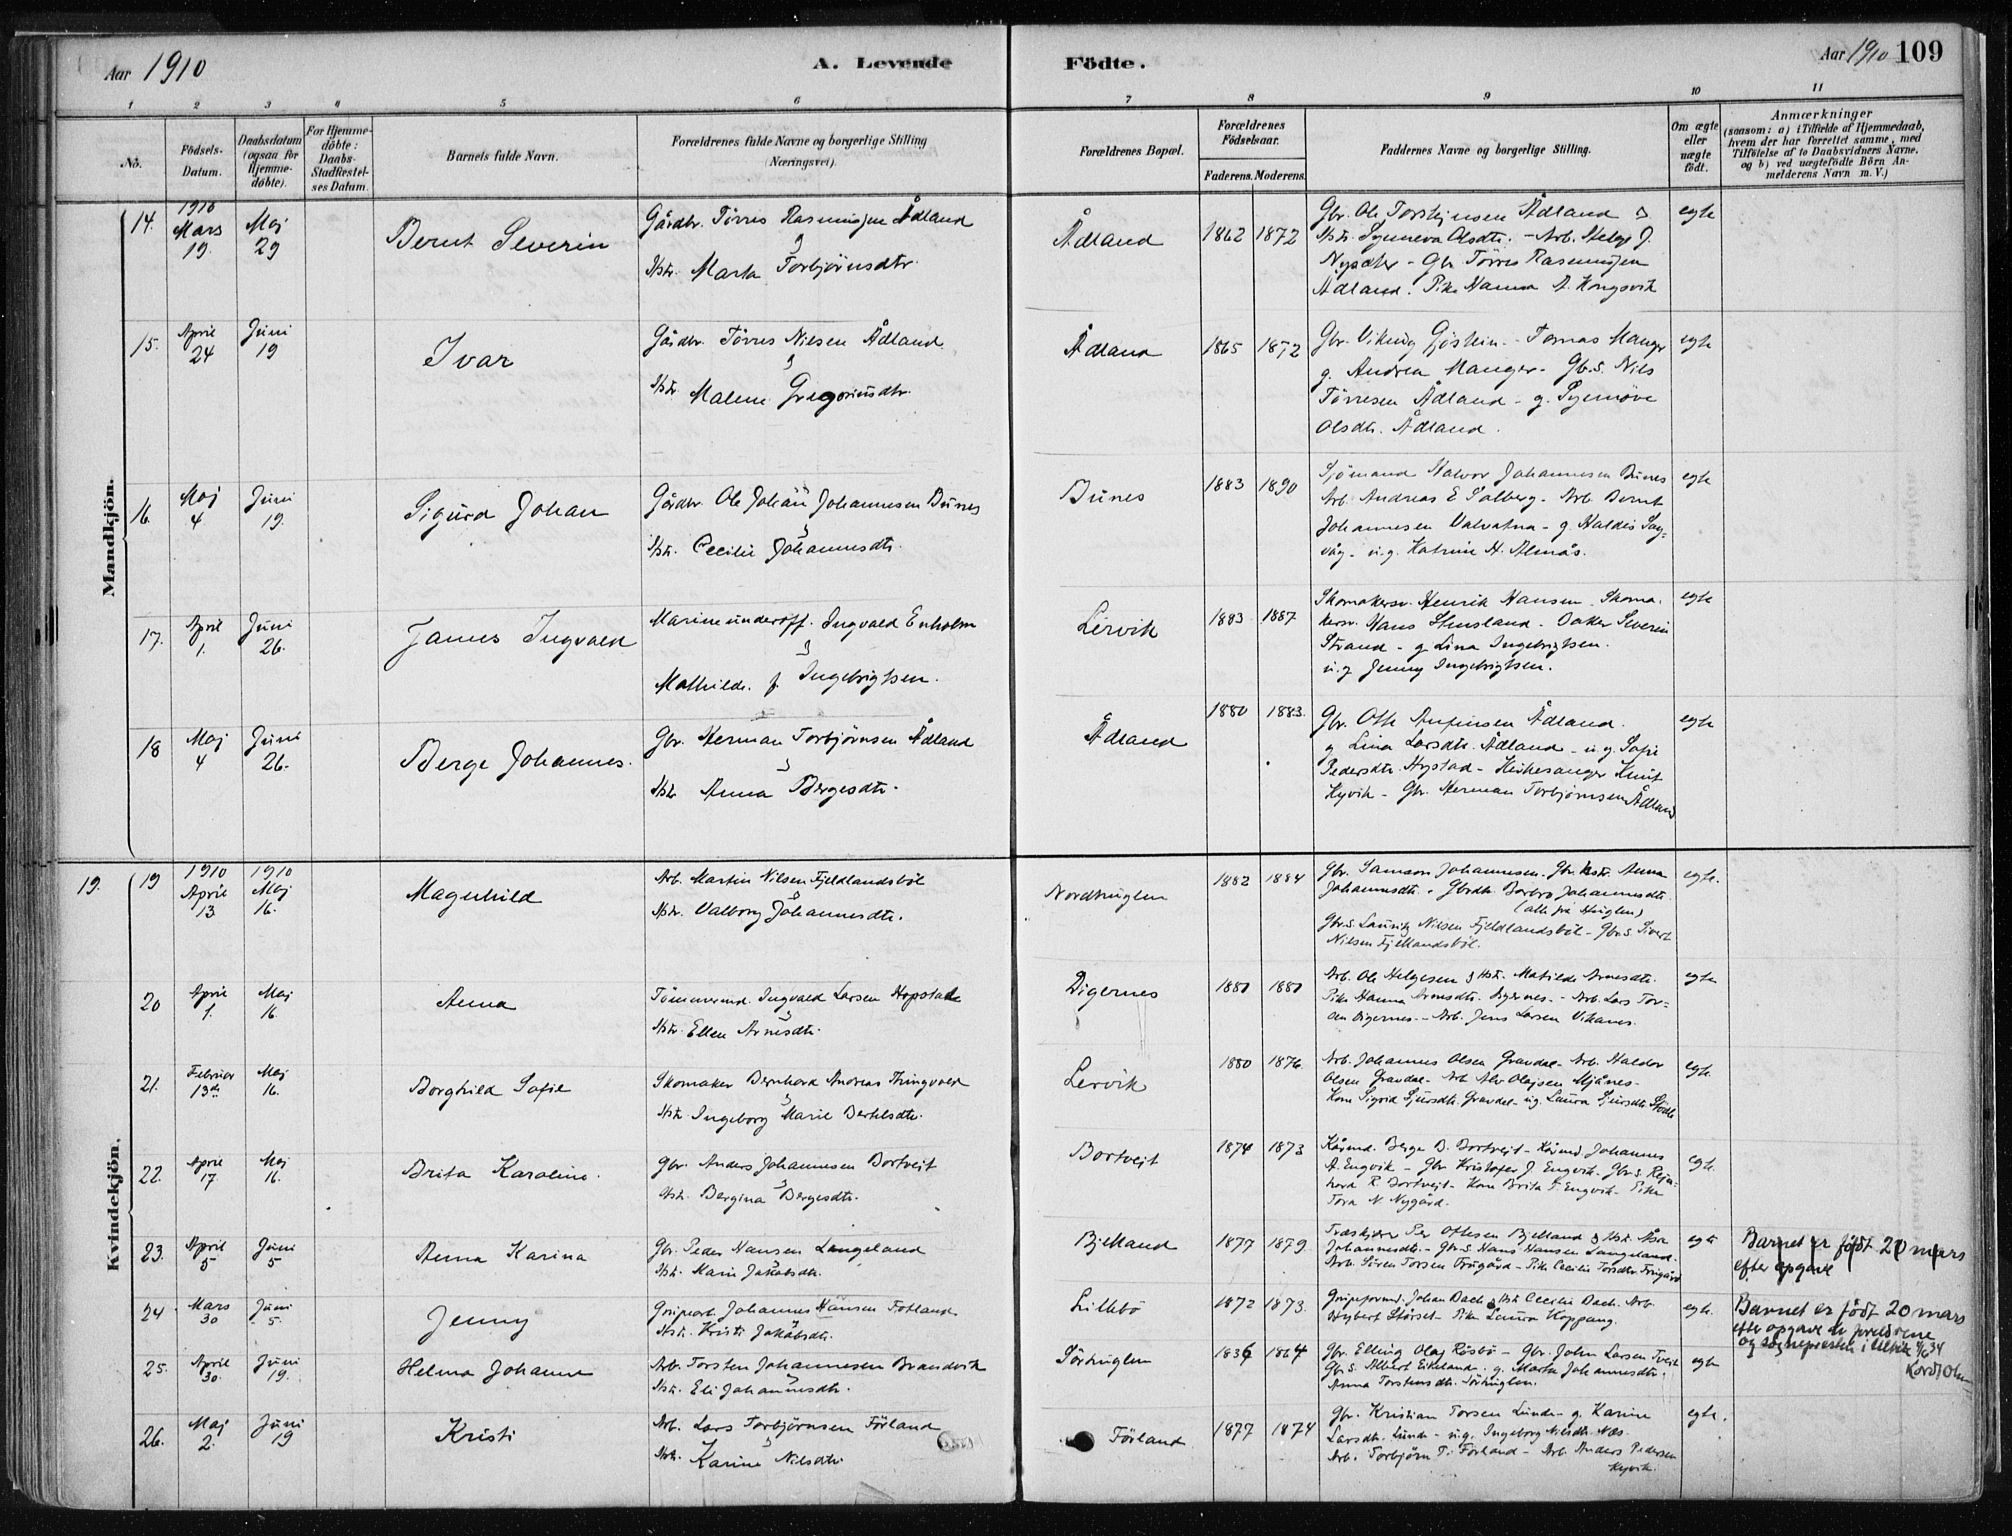 Aar 1910
A. Levende Fødte.
Aar 1910 109
1 2 3 4 5 6 7 8 9 10 11
No.
Födsels-Datum.
Daabsdatum (ogsaa for Hjemmedöbte).
For Hjemmedöbte: Daabs-Stadfæstelses Datum.
Barnets fulde Navn.
Forældrenes fulde Navne og borgerlige Stilling (Næringsvei).
Forældrenes Bopæl.
Forældrenes Födselsaar.
Faderens. Moderens.
Faddernes Navne og borgerlige Stilling.
Om ægte eller uægte födt.
Anmærkninger
(saasom: a) i Tilfælde af Hjemmedaab, hvem der har forrettet samme, med Tilföielse af to Daabsvidners Navne. og b) ved uægtefödte Börn Anmelderens Navn m. V.)
Mandkjön.
14. 1910 Mars 19. Maj 29 Bernt Severin
Gårdbr. Törris Rasmussen Ådland
Hstr. Marta Torbjörnsdtr.
Ådland 1862 1872
Gbr. Ole Torstejnsen Ådland
Hstr. Synneva Olsdtr. - Arb. Helge J.
Nysæter - Gbr Törris Rasmussen
Ådland. Pike Hanna A. Kongsvik
egte
15. April 24 Juni 19 Ivar
Gårdbr. Törris Nilsen Ådland
Hstr Malene Gregoriusdtr.
Ådland 1865 1872
Gbr. Viking Gjöstein - Tomas Manger
g. Andrea Manger - Gb.s. Nils
Törresen Ådland - g. Synnöve
Olsdtr. Ådland.
egte
16. Maj 4 Juni 19. Sigurd Johan
Gårdbr. Ole Johan Johannesen Bunes
Hstr. Cecilie Johannesdtr.
Bunes 1883 1890
Sjömand Halvor Johannesen Bunes
Arb. Andreas E Solberg - Arb. Bernt
Johannesen Valvatna - g. Haldis Sag-
våg - u.g. Katrine H. Almås.
egte
17. April 1. Juni 26. James Ingvald
Marineunderoff. Ingvald Enholm
Mathilde f. Ingebrigtsen.
Lervik 1883 1887
Skomakersv. Henrik Hansen. Skoma-
kersv. Hans Stusland - Baker Severin
Strand - g Lina Ingebrigtsen.
u.g Jenny Ingebrigtsen.
egte
18 Maj 4 Juni 26. Berge Johannes.
Gbr. Herman Torbjörnsen Ådland
Hstr Anna Bergesdtr.
Ådland 1880 1883.
Gbr. Otte Anfinsen Ådland.
g Lina Larsdtr. Ådland - u.g. Sofie
Pedersdtr. Hystad - Kirkesanger Knut
Kyvik - Gbr. Herman Torbjörnsen Ådland
egte
Kvindekjön.
19. 19 1910 April 13 1910 Maj 16. Magnhild
Arb. Martin Nilsen Fjeldlandsböl
Hstr. Valborg Johannesdtr.
Nordhuglen 1882 1884
Gbr. Samson Johannesen. Gbr. hstr. Anna
Johannesdtr. Gbrdtr. Barbro Johannesdtr.
(alle fra Huglen)
Gbr.s. Lauritz Nilsen Fjeldlandsböl - Gbr.s. Sivert
Nilsen Fjellandsböl.
egte.
20 April 1. Maj 16. Anna
Tömmermd. Ingvald Larsen Hopstad
Hstr. Ellen Arnesdtr.
Digernes 1880 1880
Arb. Ole Helgesen & Hst. Matilde Arnesdtr.
Pike Hanna Arnesdtr. Digernes - Arb. Lars Tor-
den Digernes - Arb. Jens Larsen Vikanes.
egte
21. Februar 13de Maj 16. Borghild Sofie
Skomaker Bernhard Andreas Tringvold
Hstr. Ingeborg Marie Bertelsdtr.
Lervik 1880 1876.
Arb. Johannes Olsen Gravdal - Arb. Haldor
Olsen Gravdal - Arb Alv Olajsen Mjånes -
Kone Sigrid Sjursdtr. Gravdal - ug. Laura Sjursdtr. Stödle
egte.
22. April 17. Maj 16. Brita Karoline.
Gbr. Anders Johannesen Bortvejt
Hstr. Bergina Bergesdtr.
Bortvejt 1874 1873
Kårmd. Berge B. Bortvejt - Kårmd. Johannes
A. Engvik - Gbr Kristofer J. Engvik. Gbr.s. Rejn-
hard R. Bortvejt - Kone Brita T. Engvik - Pike
Tora N Nygård.
egte.
23. April 5 Juni 5 Anna Karina
Gbr. Peder Hansen Langeland
Hstr. Marie Jakobsdtr.
Bjelland 1877 1879.
Træskjærer Per Ottesen Bjelland & Hst. Åsa
Johannesdtr. - Gbr.s. Hans Hansen Langeland -
Arb. Sören Torsen Frugård - Pike Cecilie Torsdtr. Frugård
egte
Barnet er født 20 mars
efter opgave
24 Mars 30 Juni 5. Jenny
Grubearb. Johannes Hansen Fotland
Hstr. Kristi Jakobsdtr.
Lillebö 1872 1873.
Grubeformd. Johan Bach & Hst Cecilie Bach. Arb.
Hybert Störset - Pike Laura Koppang.
egte.
Barnet er født 20 mars
efter opgave fra foreldrene
og sogneprosten i Lillebö 4/6 34
25. April 30. Juni 19. Helma Johanne
Arb. Torsten Johannesen Brandvik
Hstr. Eli Johannesdtr.
Sörhuglen 1864
Gbr. Elling Olaj Rösbö - Gbr. John Larsen Tveit
Gbr.s. Albert Eikeland. g. Marta Johannesdtr.
Anna Torstensdtr. Sörhuglen.
egte
26. Maj 2. Juni 19 Kristi
Arb. Lars Torbjörnsen Förland
Hstr. Karine Nilsdtr.
Förland 1877 1874
Gbr. Kristian Torsen Lunde - g. Karine
Larsdtr. Lunde - u.g. Ingeborg Nilsdtr. Næs
Arb. Torbjörn T. Förland - Arb. Anders Pedersen
Kyvik.
egte.